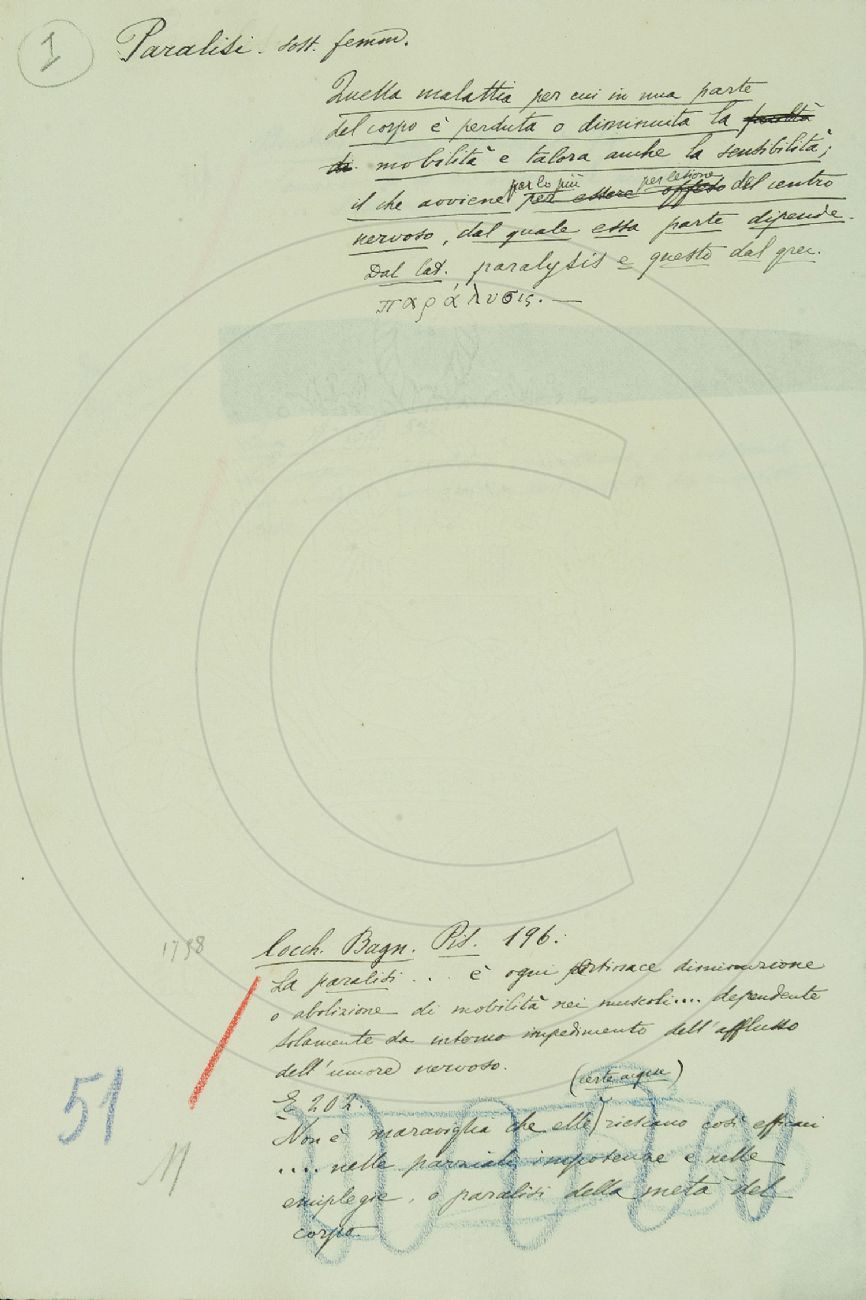 I
Paralisi. sost. femm.
Quella malattia per cui in una parte
del corpo è perduta o diminuita la facoltà
di mobilità e talora anche la sensibilità;
per lo più per lesione
il che avviene per essere offeso del centro
nervoso, dal quale essa parte dipende.
Dal lat. paralysis e questo dal grec.
παράλυσις. —
1758
Cocch. Bagn. Pis. 196:
La paralisi . . . è ogni pertinace diminuzione
o abolizione di mobilità nei muscoli.... dependente
solamente da interno impedimento dell'afflusso
dell'umore nervoso.
51
(certe acque)
E 202.
Non è maraviglia che elle riescano così efficaci
.... nelle parziali impotenze e nelle
emiplegie, o paralisi della metà del
corpo.